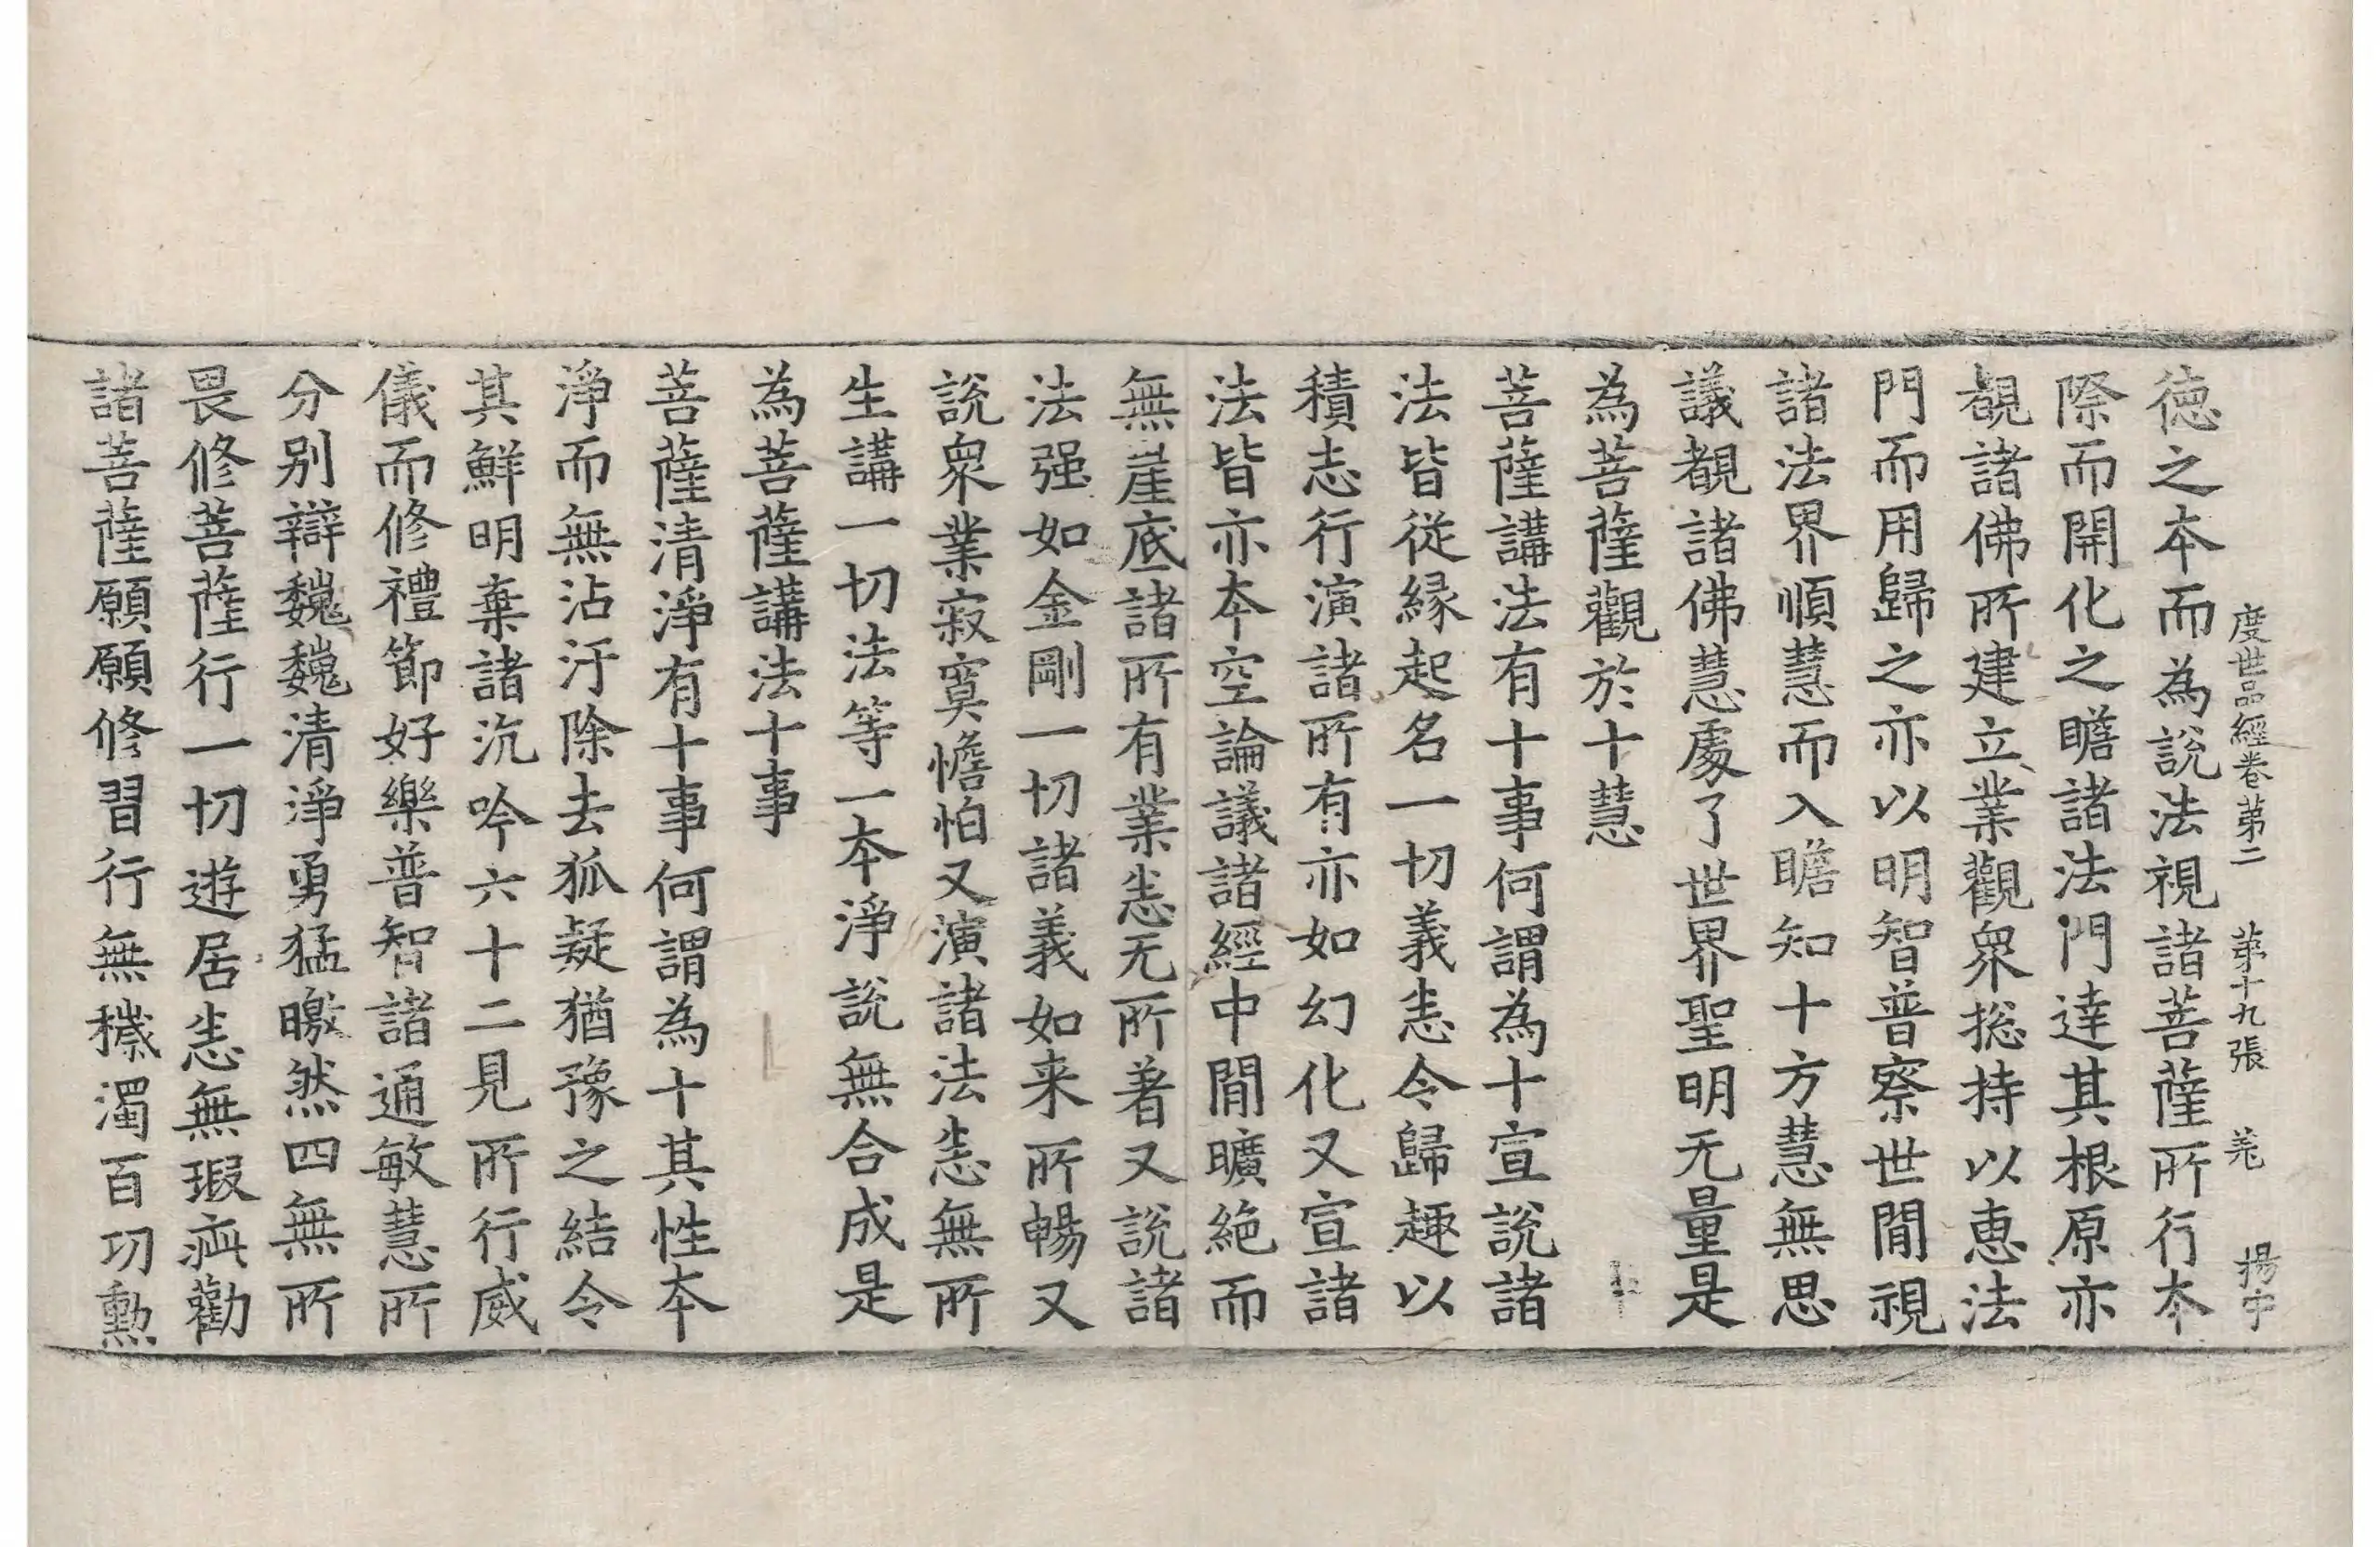 度世品經卷第二　第十九張　羌　揚中
徳之本而為説法視諸菩薩所行本
際而開化之瞻諸法門達其根原亦
覩諸佛所建立業觀衆捴持以恵法
門而用歸之亦以明智普察世間視
諸法界順慧而入瞻知十方慧無思
議覩諸佛慧處了世界聖明无量是
為菩薩觀於十慧
菩薩講法有十事何謂為十宣説諸
法皆從緣起名一切義恙令歸趣以
積志行演諸所有亦如幻化又宣諸
法皆亦本空論議諸經中間曠絶而
無崖底諸所有業恙无所著又説諸
法强如金剛一切諸義如来所暢又
説衆業寂寞憺怕又演諸法恙無所
生講一切法等一本淨説無合成是
為菩薩講法十事
菩薩清淨有十事何謂為十其性本
淨而無沾汙除去狐疑猶豫之結令
其鮮明棄諸沉吟六十二見所行威
儀而修禮節好樂普智諸通敏慧所
分别辯巍巍清淨勇猛曒然四無所
畏修菩薩行一切遊居恙無瑕疵勸
諸菩薩願願修習行無穢濁百功勲